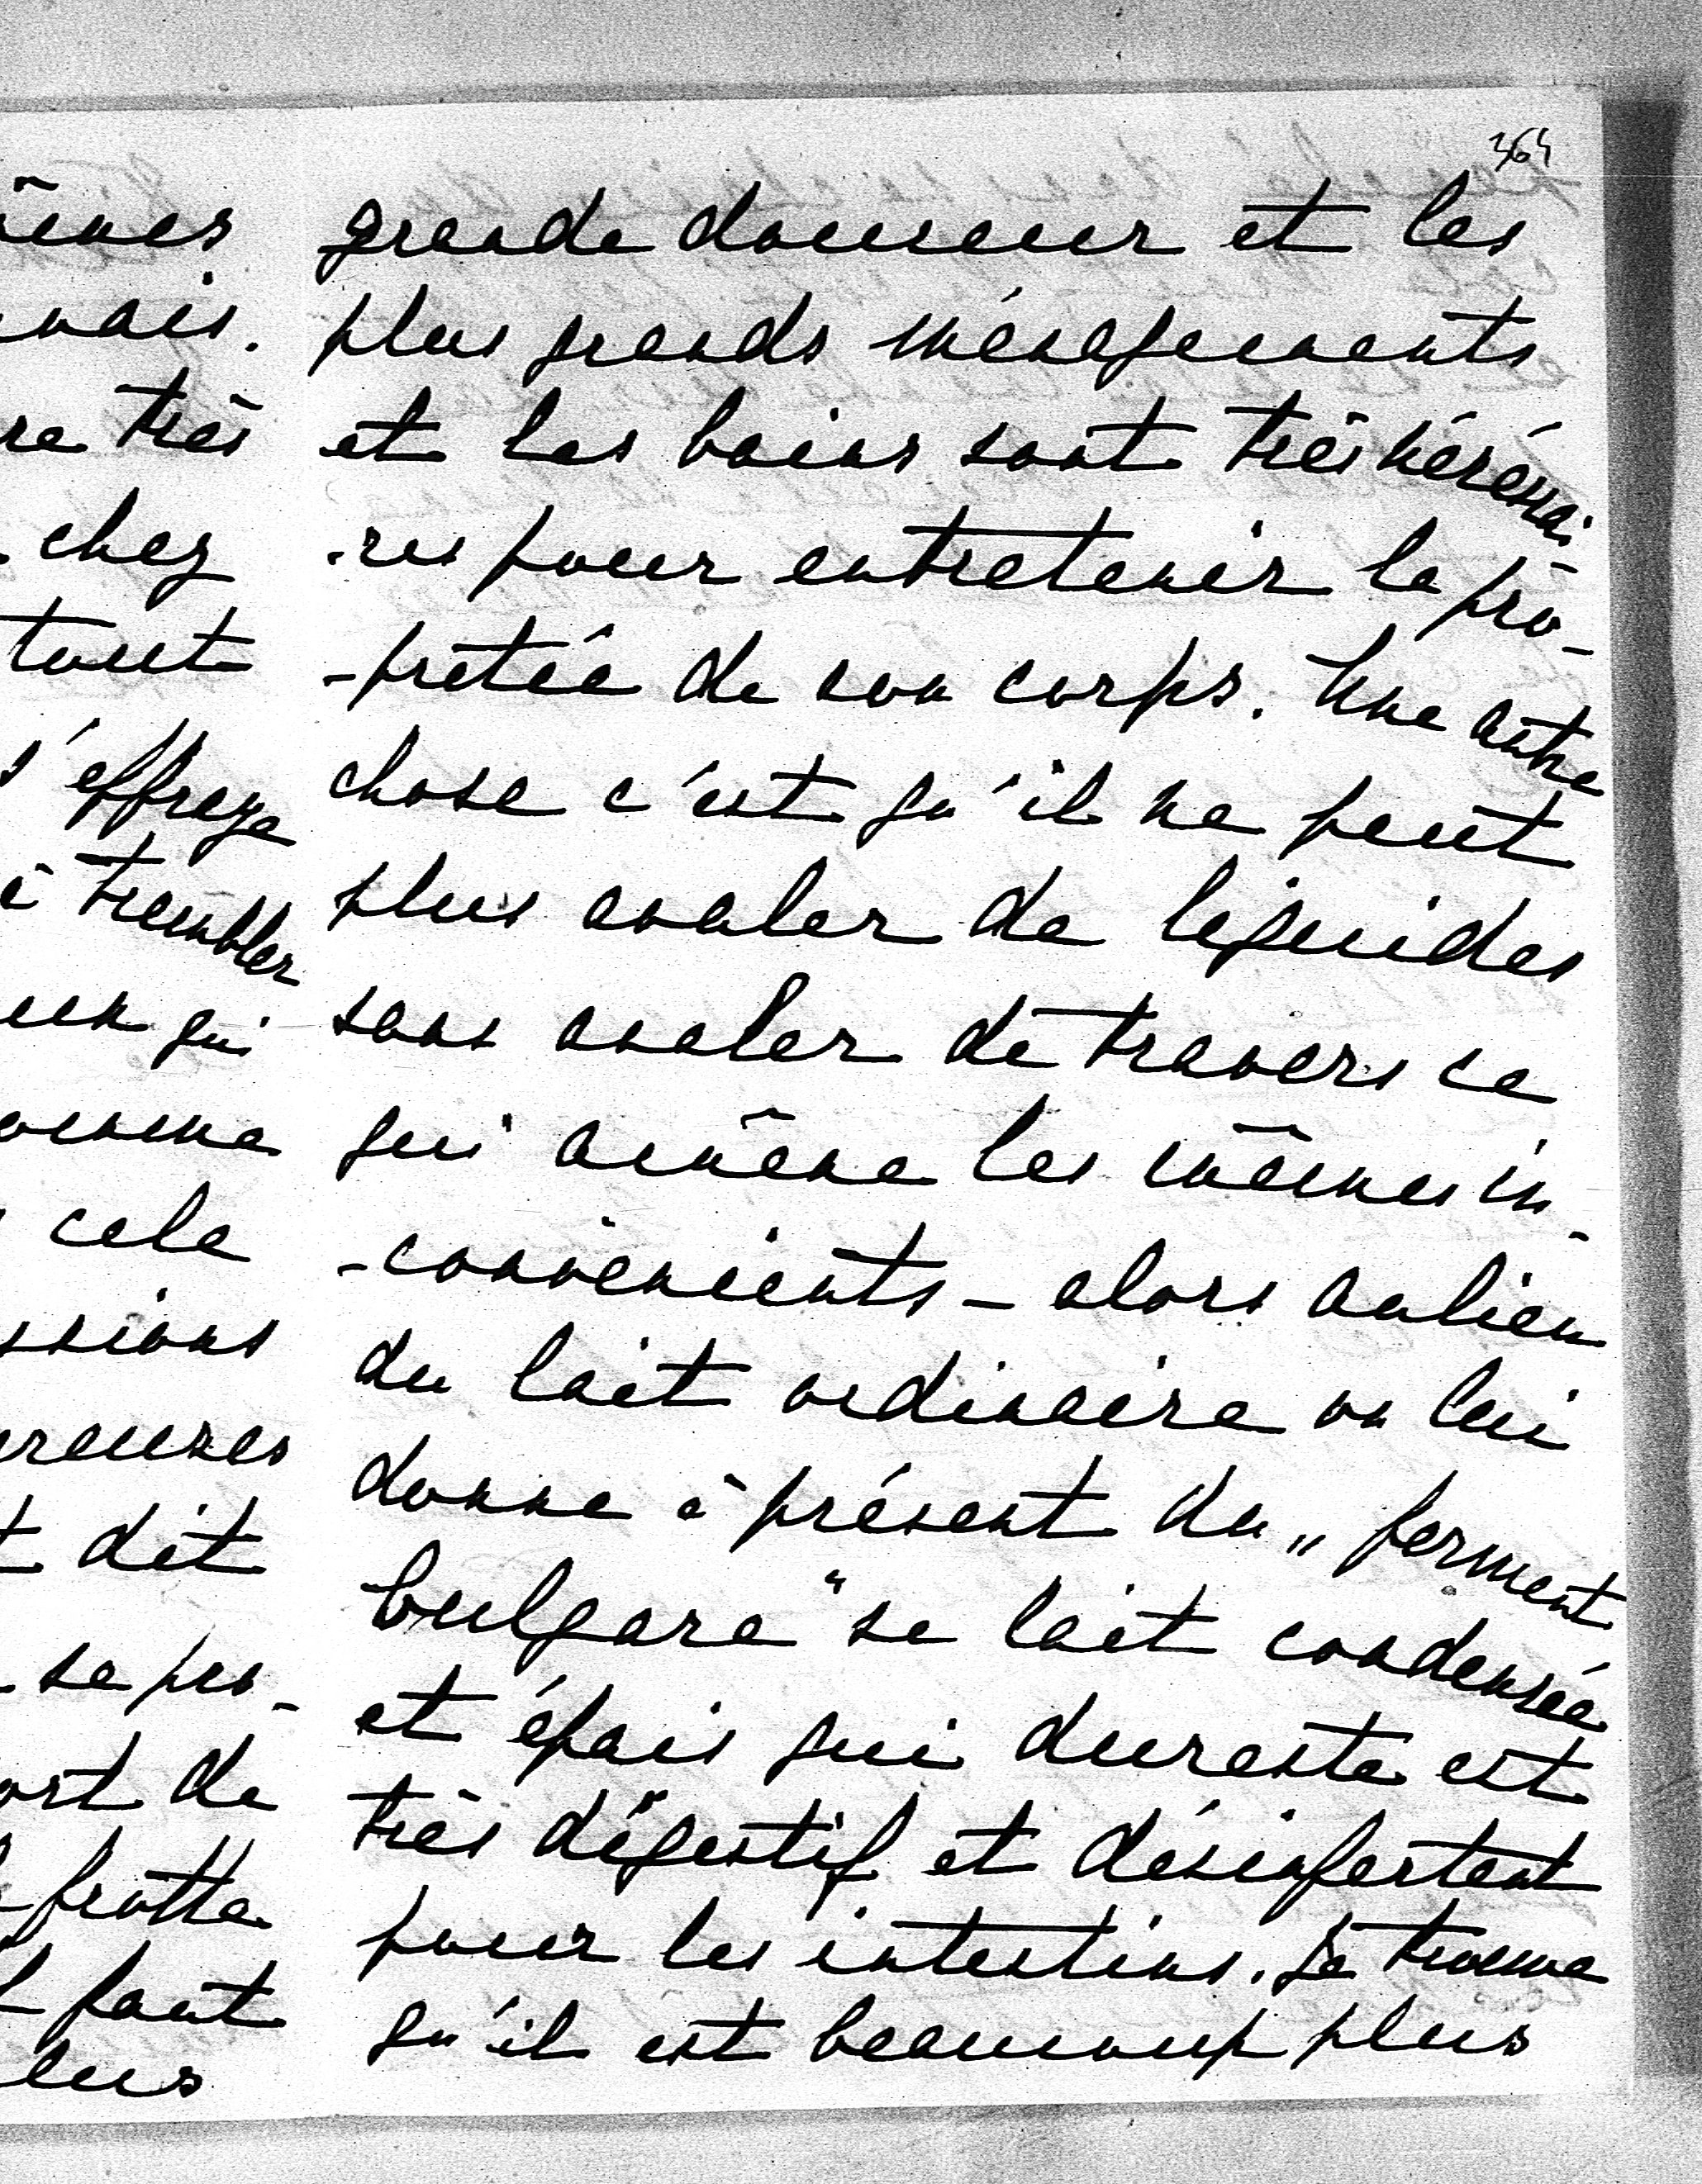 364
grande douceur et les
plus grands ménagements
et les bains sont très nécéssai
-res pour entretenir la pro-
-pretée de son corps. Une autre
chose c'est qu'il ne peut
plus avaler de liquides
sans avaler de travers ce
qui amène les mêmes in-
-convenients - alors aulieu
du lait ordinaire on lui
donne à présent du „ ferment
bulgare " se lait condensée
et épais qui dureste est
très digestif et désinfectant
pour les intestins. Je trouve
qu'il est beaucoup plus
mais.
re très
chez
tout
s'effraye
à trembler
qui
cela
ssions
reuses
t dit
se pro-
ort de
frotte
faut
lus